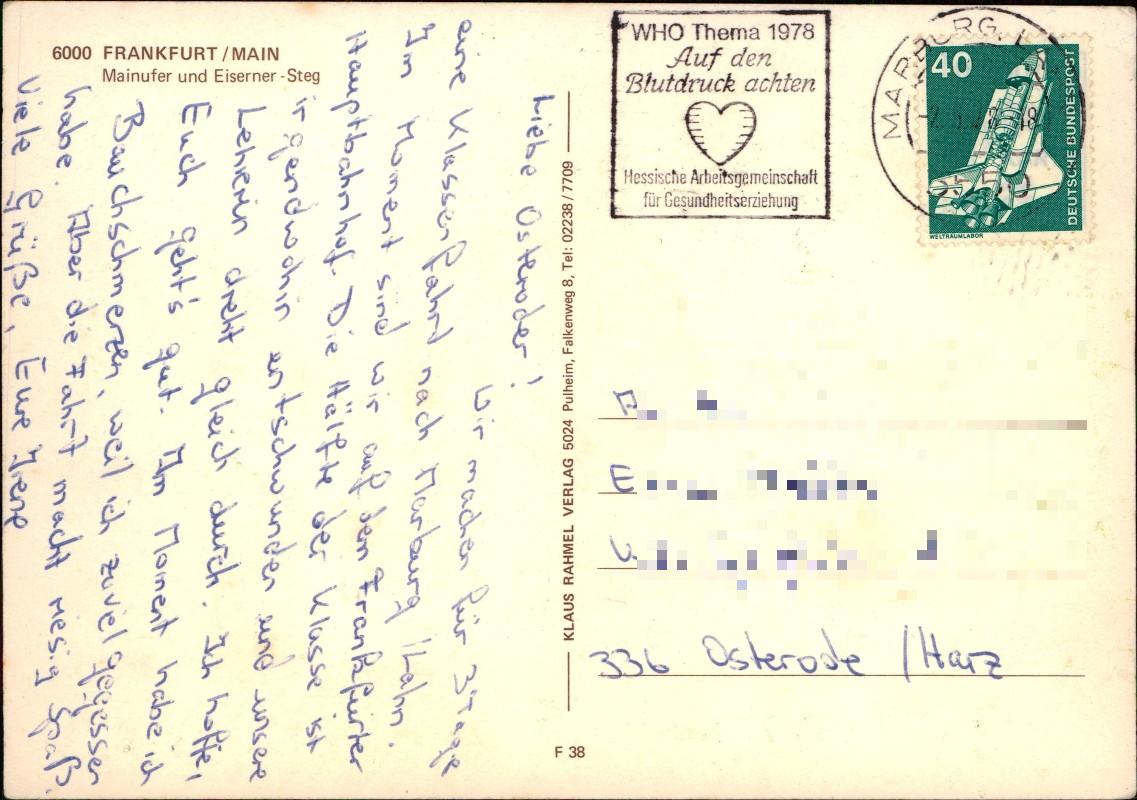 6000 FRANKFURT/MAIN
Mainufer und Eiserner-Steg
Liebe Osteroder!
Wir machen für 3 Tage
eine Klassenfahrt nach Marburg/Lahn.
Im Moment sind wir auf dem Frankfurter
Hauptbahnhof. Die Hälfte der Klasse ist
irgendwohin entschwunden und unsere
Lehrerin dreht gleich durch. Ich hoffe,
Euch geht's gut. Im Moment habe ich
Bauchschmerzen, weil ich zuviel gegessen
habe. Aber die Fahrt macht riesig Spaß.
Viele Grüße, Eure Irene
KLAUS RAHMEL VERLAG 5024 Pulheim, Falkenweg 8, Tel: 02238/7709
WHO Thema 1978
Auf den
Blutdruck achten
Hessische Arbeitsgemeinschaft
für Gesundheitserziehung
MARBURG, L
18
40
DEUTSCHE BUNDESPOST
WELTRAUMLABOR
E
336 Osterode /Harz
F 38